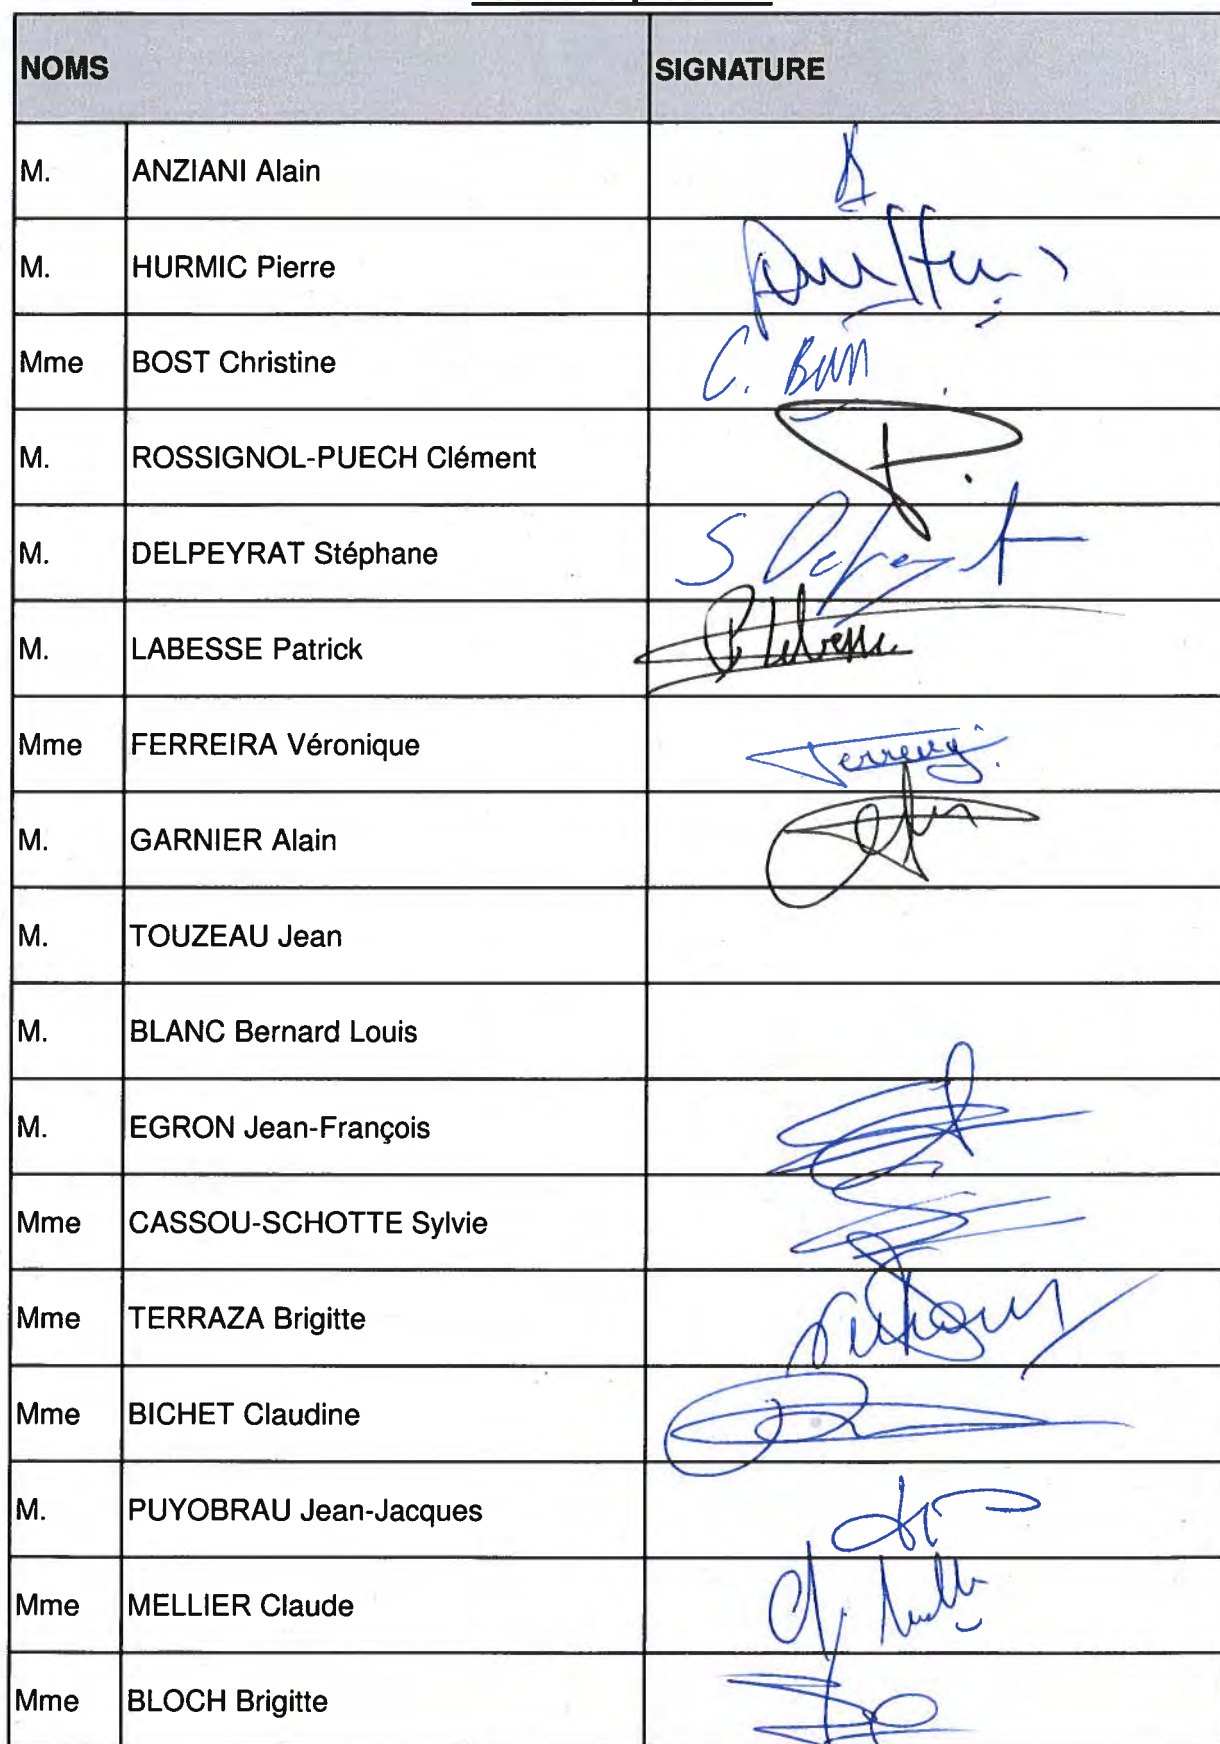 NOMS SIGNATURE
M. ANZIANI Alain
M. HURMIC Pierre
Mme BOST Christine C.
M. ROSSIGNOL-PUECH Clément
M. DELPEYRAT Stéphane S
M. LABESSE Patrick
Mme FERREIRA Véronique
M. GARNIER Alain
M. TOUZEAU Jean
M. BLANC Bernard Louis
M. EGRON Jean-François
Mme CASSOU-SCHOTTE Sylvie
Mme TERRAZA Brigitte
Mme BICHET Claudine
M. PUYOBRAU Jean-Jacques
Mme MELLIER Claude
Mme BLOCH Brigitte